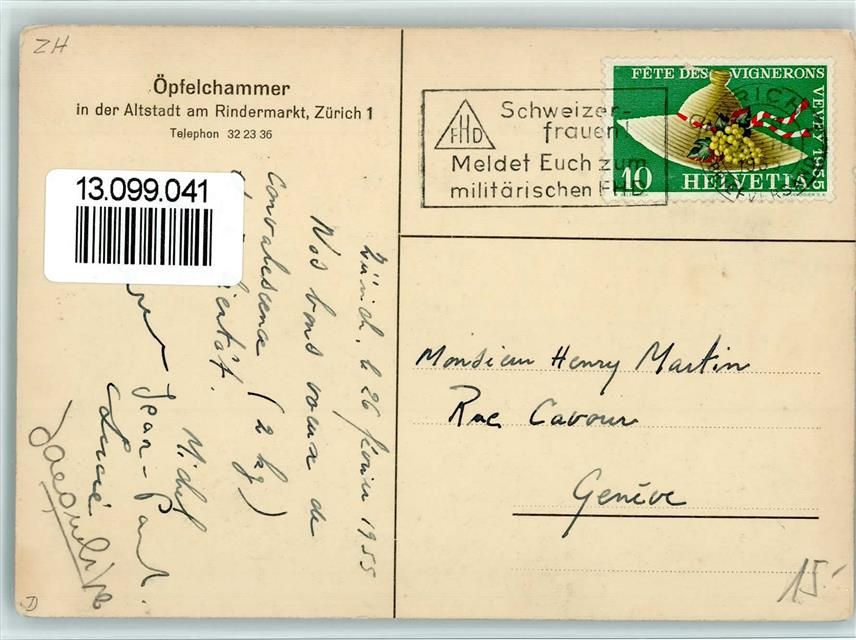 ZH
Öpfelchammer
in der Altstadt am Rindermarkt, Zürich 1
Telephon 32 23 36
13.099.041
FHD
Schweizer-
frauen!
Meldet Euch zum
militärischen FHD
FÊTE DES VIGNERONS
VEVEY 1955
10 HELVETIA
Zürich, le 26 février 1955
Nos bons voeux de
Convalescence (2 kg)
Michel
Jean-Paul.
Monsieur Henry Martin
Rue Cavour
Genève
15.-
D